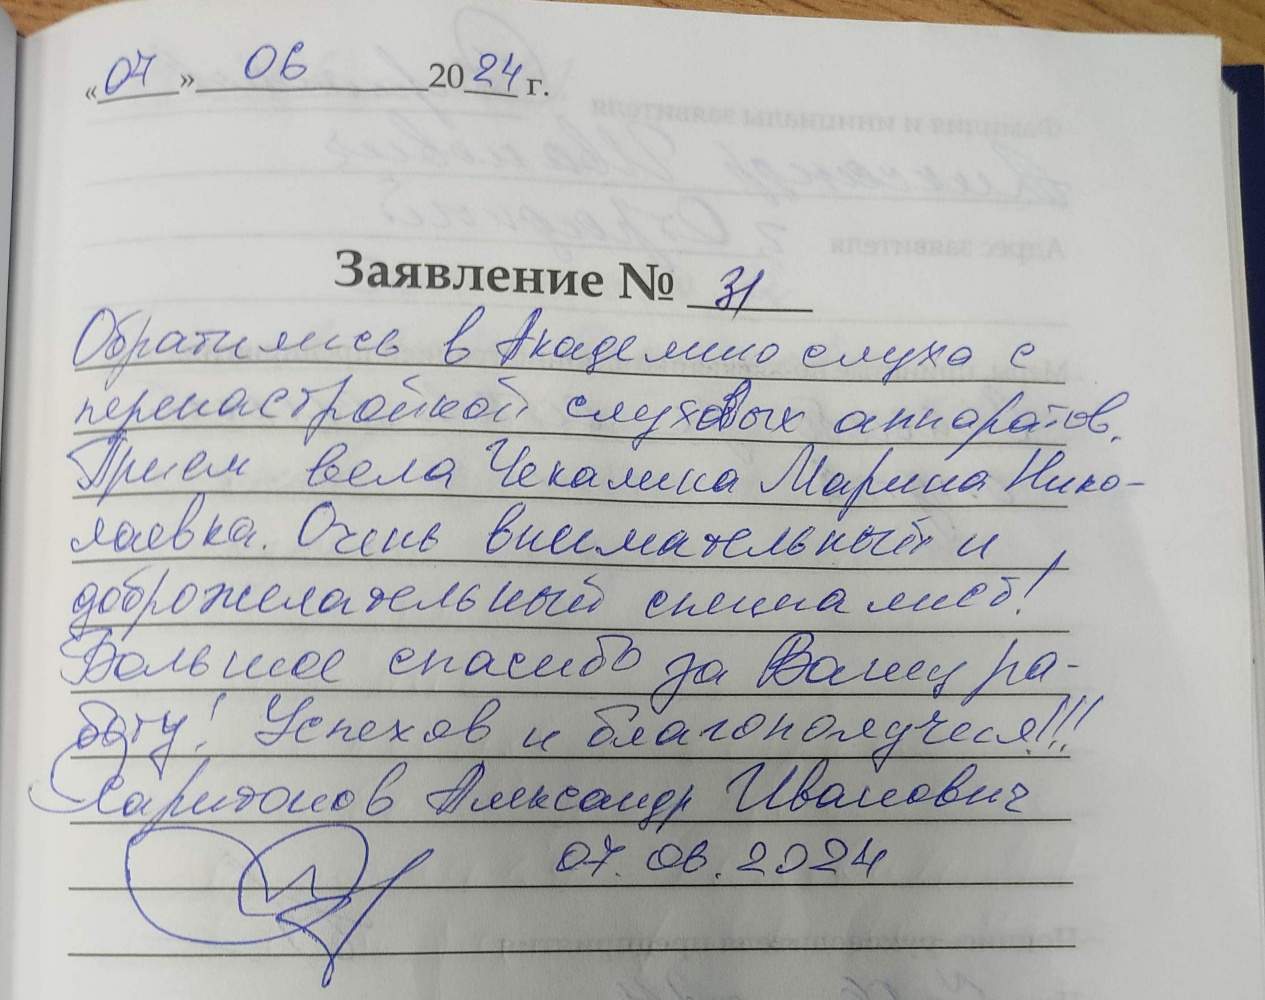 «07» 06 2024 г.
Заявление № 31
Обратились в Академию слуха с
перенастройкой слуховых аппаратов.
Прием вела Чекалина Марина Нико-
лаевна. Очень внимательный и
доброжелательный специалист!
Большое спасибо за Вашу ра-
боту! Успехов и благополучия!!!
Харитонов Александр Иванович
07.06.2024